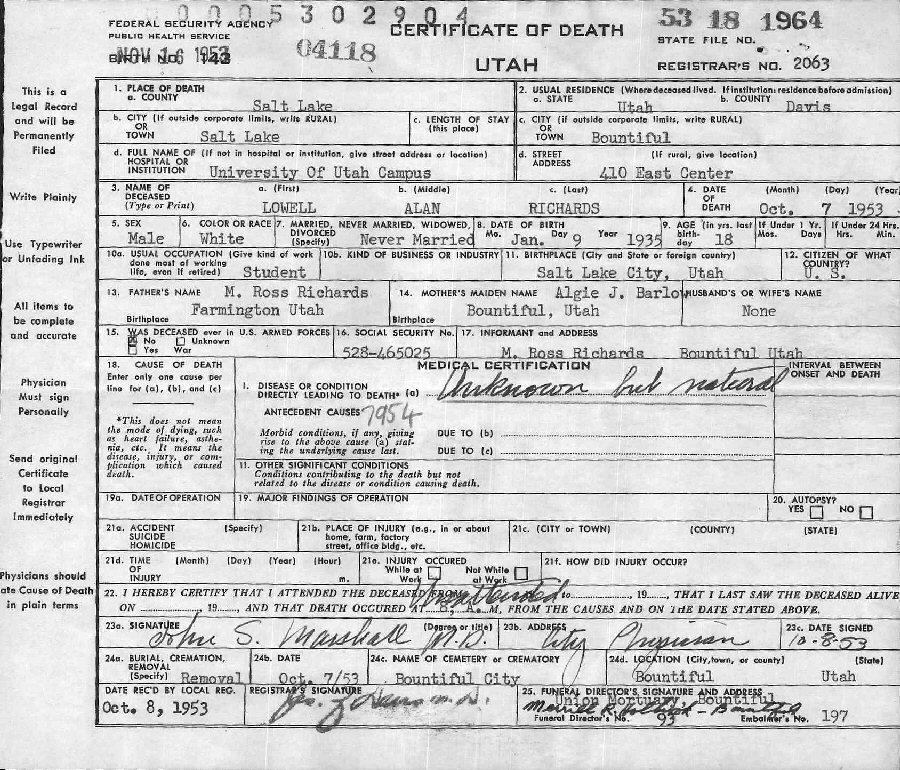 0005302904
FEDERAL SECURITY AGENCY
PUBLIC HEALTH SERVICE
NOV 16 1953
BIRTH NO. 143
04118
CERTIFICATE OF DEATH
UTAH
53 18 1964
STATE FILE NO.
REGISTRAR'S NO. 2063
This is a
Legal Record
and will be
Permanently
Filed
Write Plainly
Use Typewriter
or Unfading Ink
All items to
be complete
and accurate
Physician
Must sign
Personally
Send original
Certificate
to Local
Registrar
Immediately
Physicians should
ate Cause of Death
in plain terms
1. PLACE OF DEATH
a. COUNTY
Salt Lake
2. USUAL RESIDENCE (Where deceased lived. If institution: residence before admission)
a. STATE Utah b. COUNTY Davis
b. CITY (If outside corporate limits, write RURAL)
OR
TOWN Salt Lake
c. LENGTH OF STAY
(this place)
c. CITY (If outside corporate limits, write RURAL)
OR
TOWN Bountiful
d. FULL NAME OF (If not in hospital or institution, give street address or location)
HOSPITAL OR
INSTITUTION University Of Utah Campus
d. STREET (If rural, give location)
ADDRESS 410 East Center
3. NAME OF a. (First) b. (Middle) c. (Last)
DECEASED
(Type or Print) LOWELL ALAN RICHARDS
4. DATE (Month) (Day) (Year)
OF
DEATH Oct. 7 1953
5. SEX
Male
6. COLOR OR RACE
White
7. MARRIED, NEVER MARRIED, WIDOWED,
DIVORCED
(Specify) Never Married
8. DATE OF BIRTH
Mo. Jan. Day 9 Year 1935
9. AGE (in yrs. last
birth-
day 18
If Under 1 Yr.
Mos. Days
If Under 24 Hrs.
Hrs. Min.
10a. USUAL OCCUPATION (Give kind of work
done most of working
life, even if retired) Student
10b. KIND OF BUSINESS OR INDUSTRY
11. BIRTHPLACE (City and State or foreign country)
Salt Lake City, Utah
12. CITIZEN OF WHAT
COUNTRY?
U. S.
13. FATHER'S NAME M. Ross Richards
Birthplace Farmington Utah
14. MOTHER'S MAIDEN NAME Algie J. Barlow
Birthplace Bountiful, Utah
HUSBAND'S OR WIFE'S NAME
None
15. WAS DECEASED ever in U.S. ARMED FORCES
No Unknown
Yes War
16. SOCIAL SECURITY No.
528-465025
17. INFORMANT and ADDRESS
M. Ross Richards Bountiful Utah
18. CAUSE OF DEATH
Enter only one cause per
line for (a), (b), and (c)
*This does not mean
the mode of dying, such
as heart failure, asthe-
nia, etc. It means the
disease, injury, or com-
plication which caused
death.
MEDICAL CERTIFICATION
INTERVAL BETWEEN
ONSET AND DEATH
I. DISEASE OR CONDITION
DIRECTLY LEADING TO DEATH* (a) Unknown but natural
ANTECEDENT CAUSES 7954
Morbid conditions, if any, giving
rise to the above cause (a) stat-
ing the underlying cause last.
DUE TO (b)
DUE TO (c)
11. OTHER SIGNIFICANT CONDITIONS
Conditions contributing to the death but not
related to the disease or condition causing death.
19a. DATE OF OPERATION
19. MAJOR FINDINGS OF OPERATION
20. AUTOPSY?
YES NO
21a. ACCIDENT (Specify)
SUICIDE
HOMICIDE
21b. PLACE OF INJURY (e.g., in or about
home, farm, factory
street, office bldg., etc.
21c. (CITY or TOWN) (COUNTY) (STATE)
21d. TIME (Month) (Day) (Year) (Hour)
OF
INJURY m.
21e. INJURY OCCURED
While at Not While
Work at Work
21f. HOW DID INJURY OCCUR?
22. I HEREBY CERTIFY THAT I ATTENDED THE DECEASED FROM to 19 , THAT I LAST SAW THE DECEASED ALIVE
ON 19 , AND THAT DEATH OCCURED AT 8, A. M, FROM THE CAUSES AND ON THE DATE STATED ABOVE.
23a. SIGNATURE (Degree or title)
John S. Marshall M.D.
23b. ADDRESS
City Physician
23c. DATE SIGNED
10-8-53
24a. BURIAL, CREMATION,
REMOVAL
(Specify) Removal
24b. DATE
Oct. 7/53
24c. NAME OF CEMETERY OR CREMATORY
Bountiful City
24d. LOCATION (City, town, or county) (State)
Bountiful Utah
DATE REC'D BY LOCAL REG.
Oct. 8, 1953
REGISTRAR'S SIGNATURE
25. FUNERAL DIRECTOR'S, SIGNATURE AND ADDRESS
Union Mortuary, Bountiful
Bountiful
Funeral Director's No. 93 Embalmer's No. 197